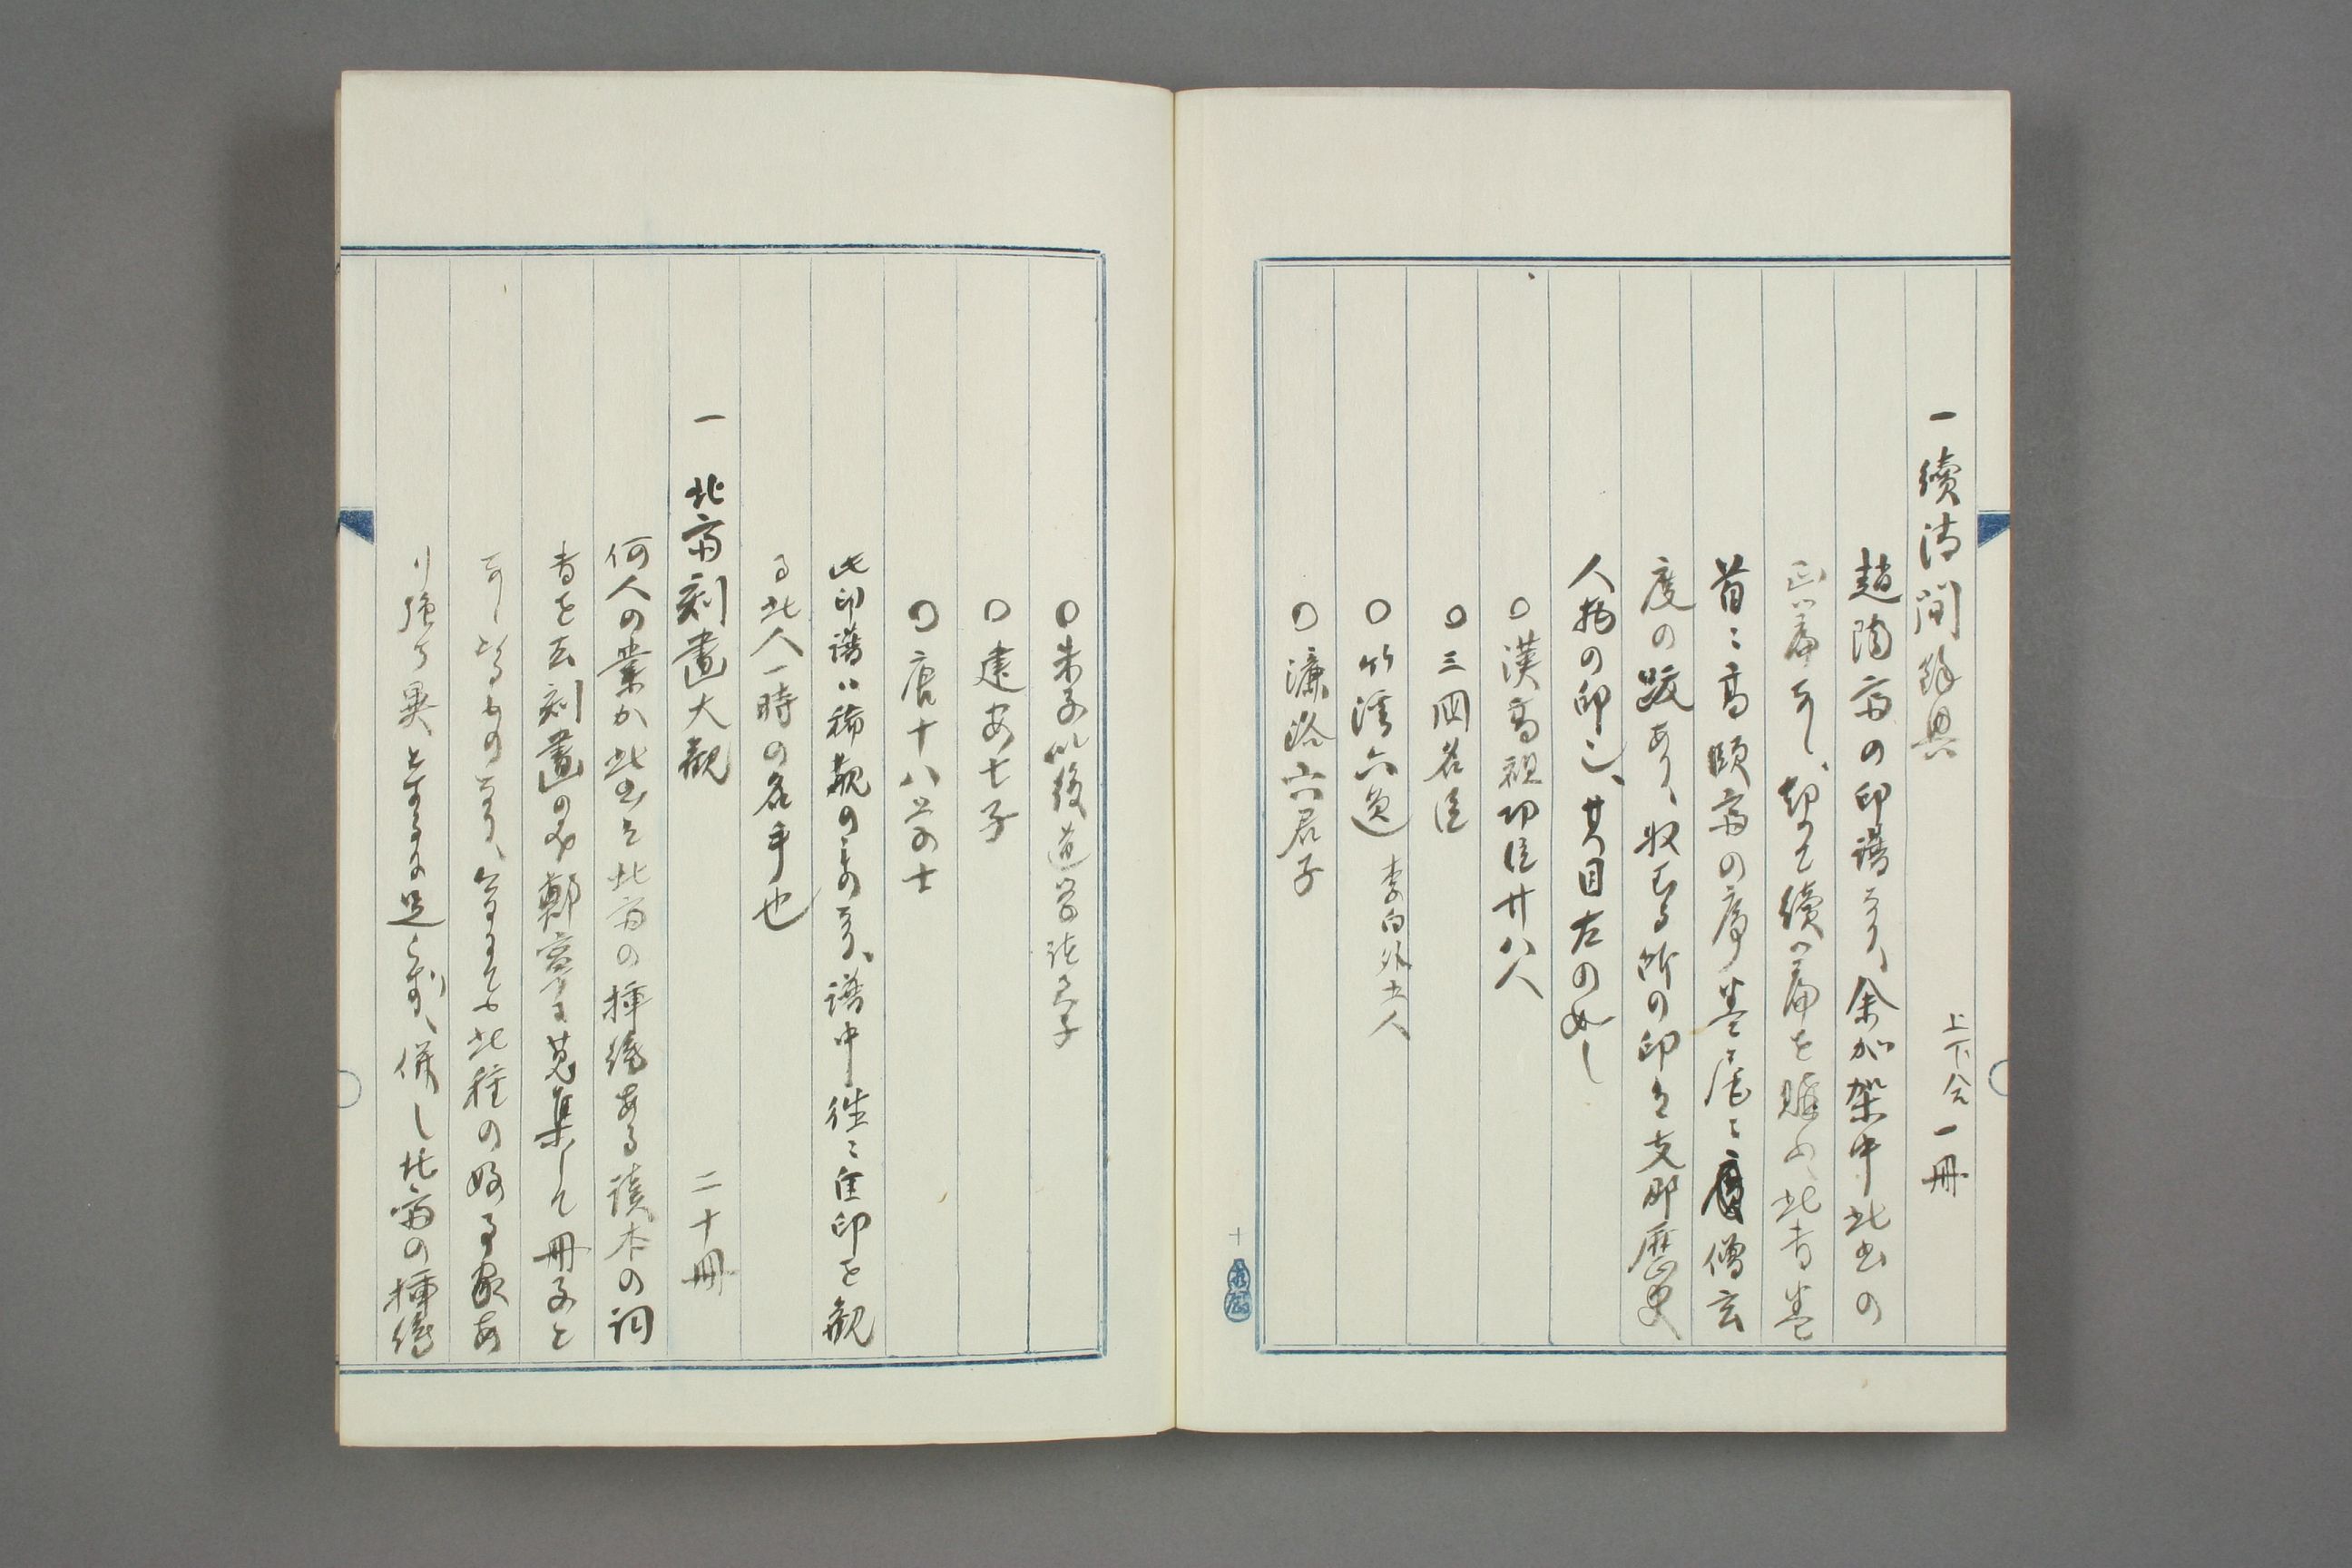 一 續清閒餘興 上下合一冊
趙陶斎の印譜なり、余が架中此書の
正篇なし、却て續篇を購ふ、此書巻
首ニ高頤斎の序巻尾ニ僧玄
度の跋あり、収むる所の印は支那歴史
人物の印也、其目左の如し
○漢高祖功臣廿八人
○三国名臣
○竹渓六逸 李白外五人
○濂洛六君子
十
○朱子以後道学諸君子
○建安七子
○唐十八学士
此印譜ハ稀覯のものなり、譜中往々佳印を観
る此人一時の名手也
一 北斎刻畫大觀 二十冊
何人の業か此書は北斎の挿絵ある読本の詞
書を去刻畫の処郭寧に蒐集して冊子と
なしたるものなり、
此種の好る家あ
り強ヶ異とするに足らず、併し北斎の挿絵